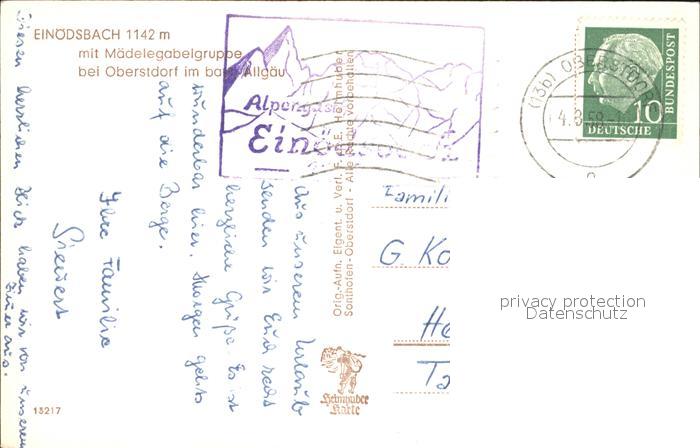 EINÖDSBACH 1142 m
mit Mädelegabelgruppe
bei Oberstdorf im bayr. Allgäu
Alpengast
Einödsbach
(13b) OBERSTDORF
4.8.58
10
DEUTSCHE
BUNDESPOST
Aus unserem Urlaub
senden wir Euch recht
herzliche Grüße. Es ist
wunderbar hier. Morgen gehts
auf die Berge.
Ihre Familie
Siewert
Diesen herrlichen Blick haben wir von unserem
Zimmer aus.
Orig.-Aufn. Eigent. u. Verl. F. u. E. Heimhuber
Sonthofen-Oberstdorf - Alle Rechte vorbehalten
Famili
G. Ko
Ha
Ta
privacy protection
Datenschutz
Heimhuber
Karte
13217